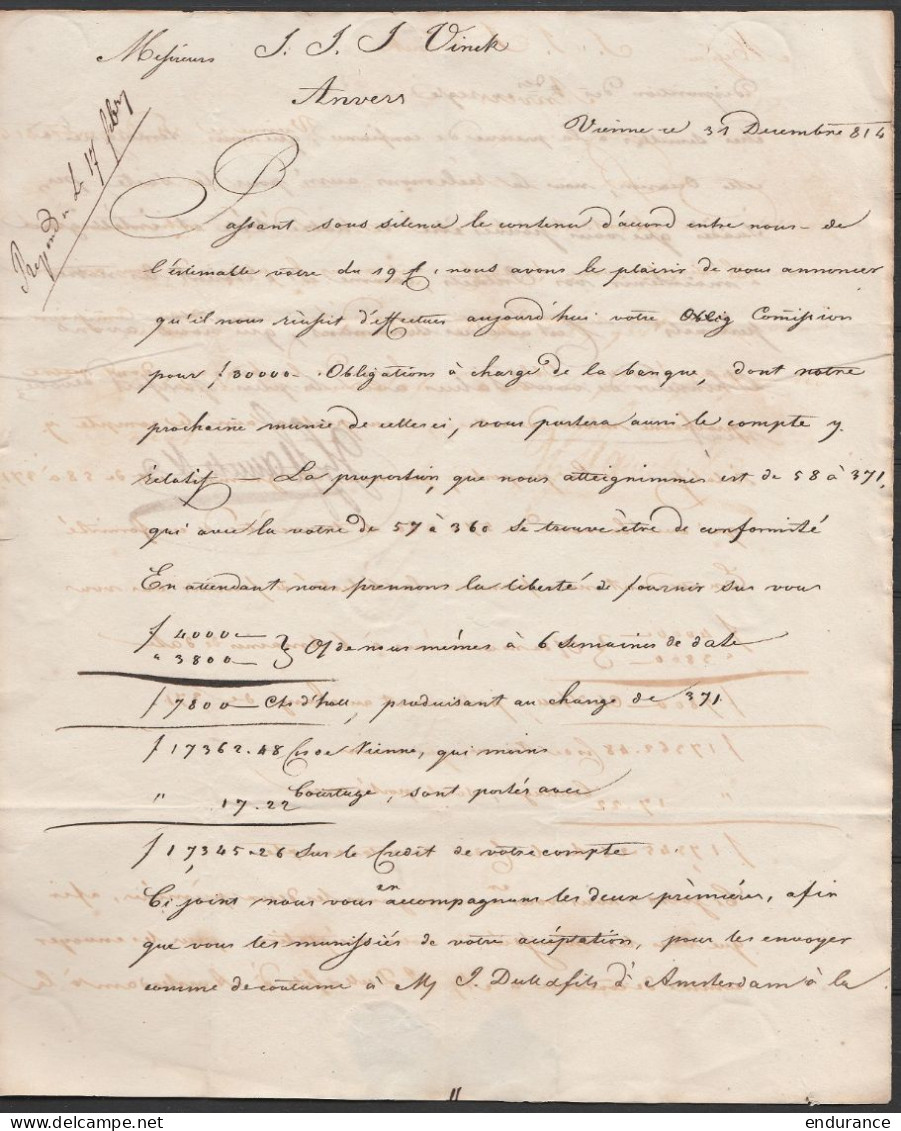 Messieurs J. J. J Vinck
Anvers
Vienne ce 31 Decembre 814
Repondu Le 17 febry
Passant sous silence le contenu d'acord entre nous de
l'éstimable votre du 19 , nous avons le plaisir de vous annoncer
qu'il nous réussit d'effectuer aujourd'hui votre Oblig Comission
pour f 30000 - Obligations à charge de la banque, dont notre
prochaine munie de celles ci, vous portera aussi le compte y.
rélatif — La proportion, que nous atteignimmes est de 58 à 371,
qui avec la votre de 57 à 360 se trouve être de conformité
En attendant nous prennons la liberté de fournir sur vous
f 4000 —
" 3800 — } O/ de nous mêmes à 6 Semaines de date
f 7800 — Cts d'holl, produisant au change de 371.
f 17362.48 Cs de Vienne, qui moins
" 17.22 Courtage, sont portés avec
f 17,345.26 Sur le Credit de votre compte
Ci joint nous vous en accompagnons les deux prèmiéres, afin
que vous les munissiés de votre acéptation, pour les envoyer
comme de coutume à M J. Dull & fils d'Amsterdam à la
endurance